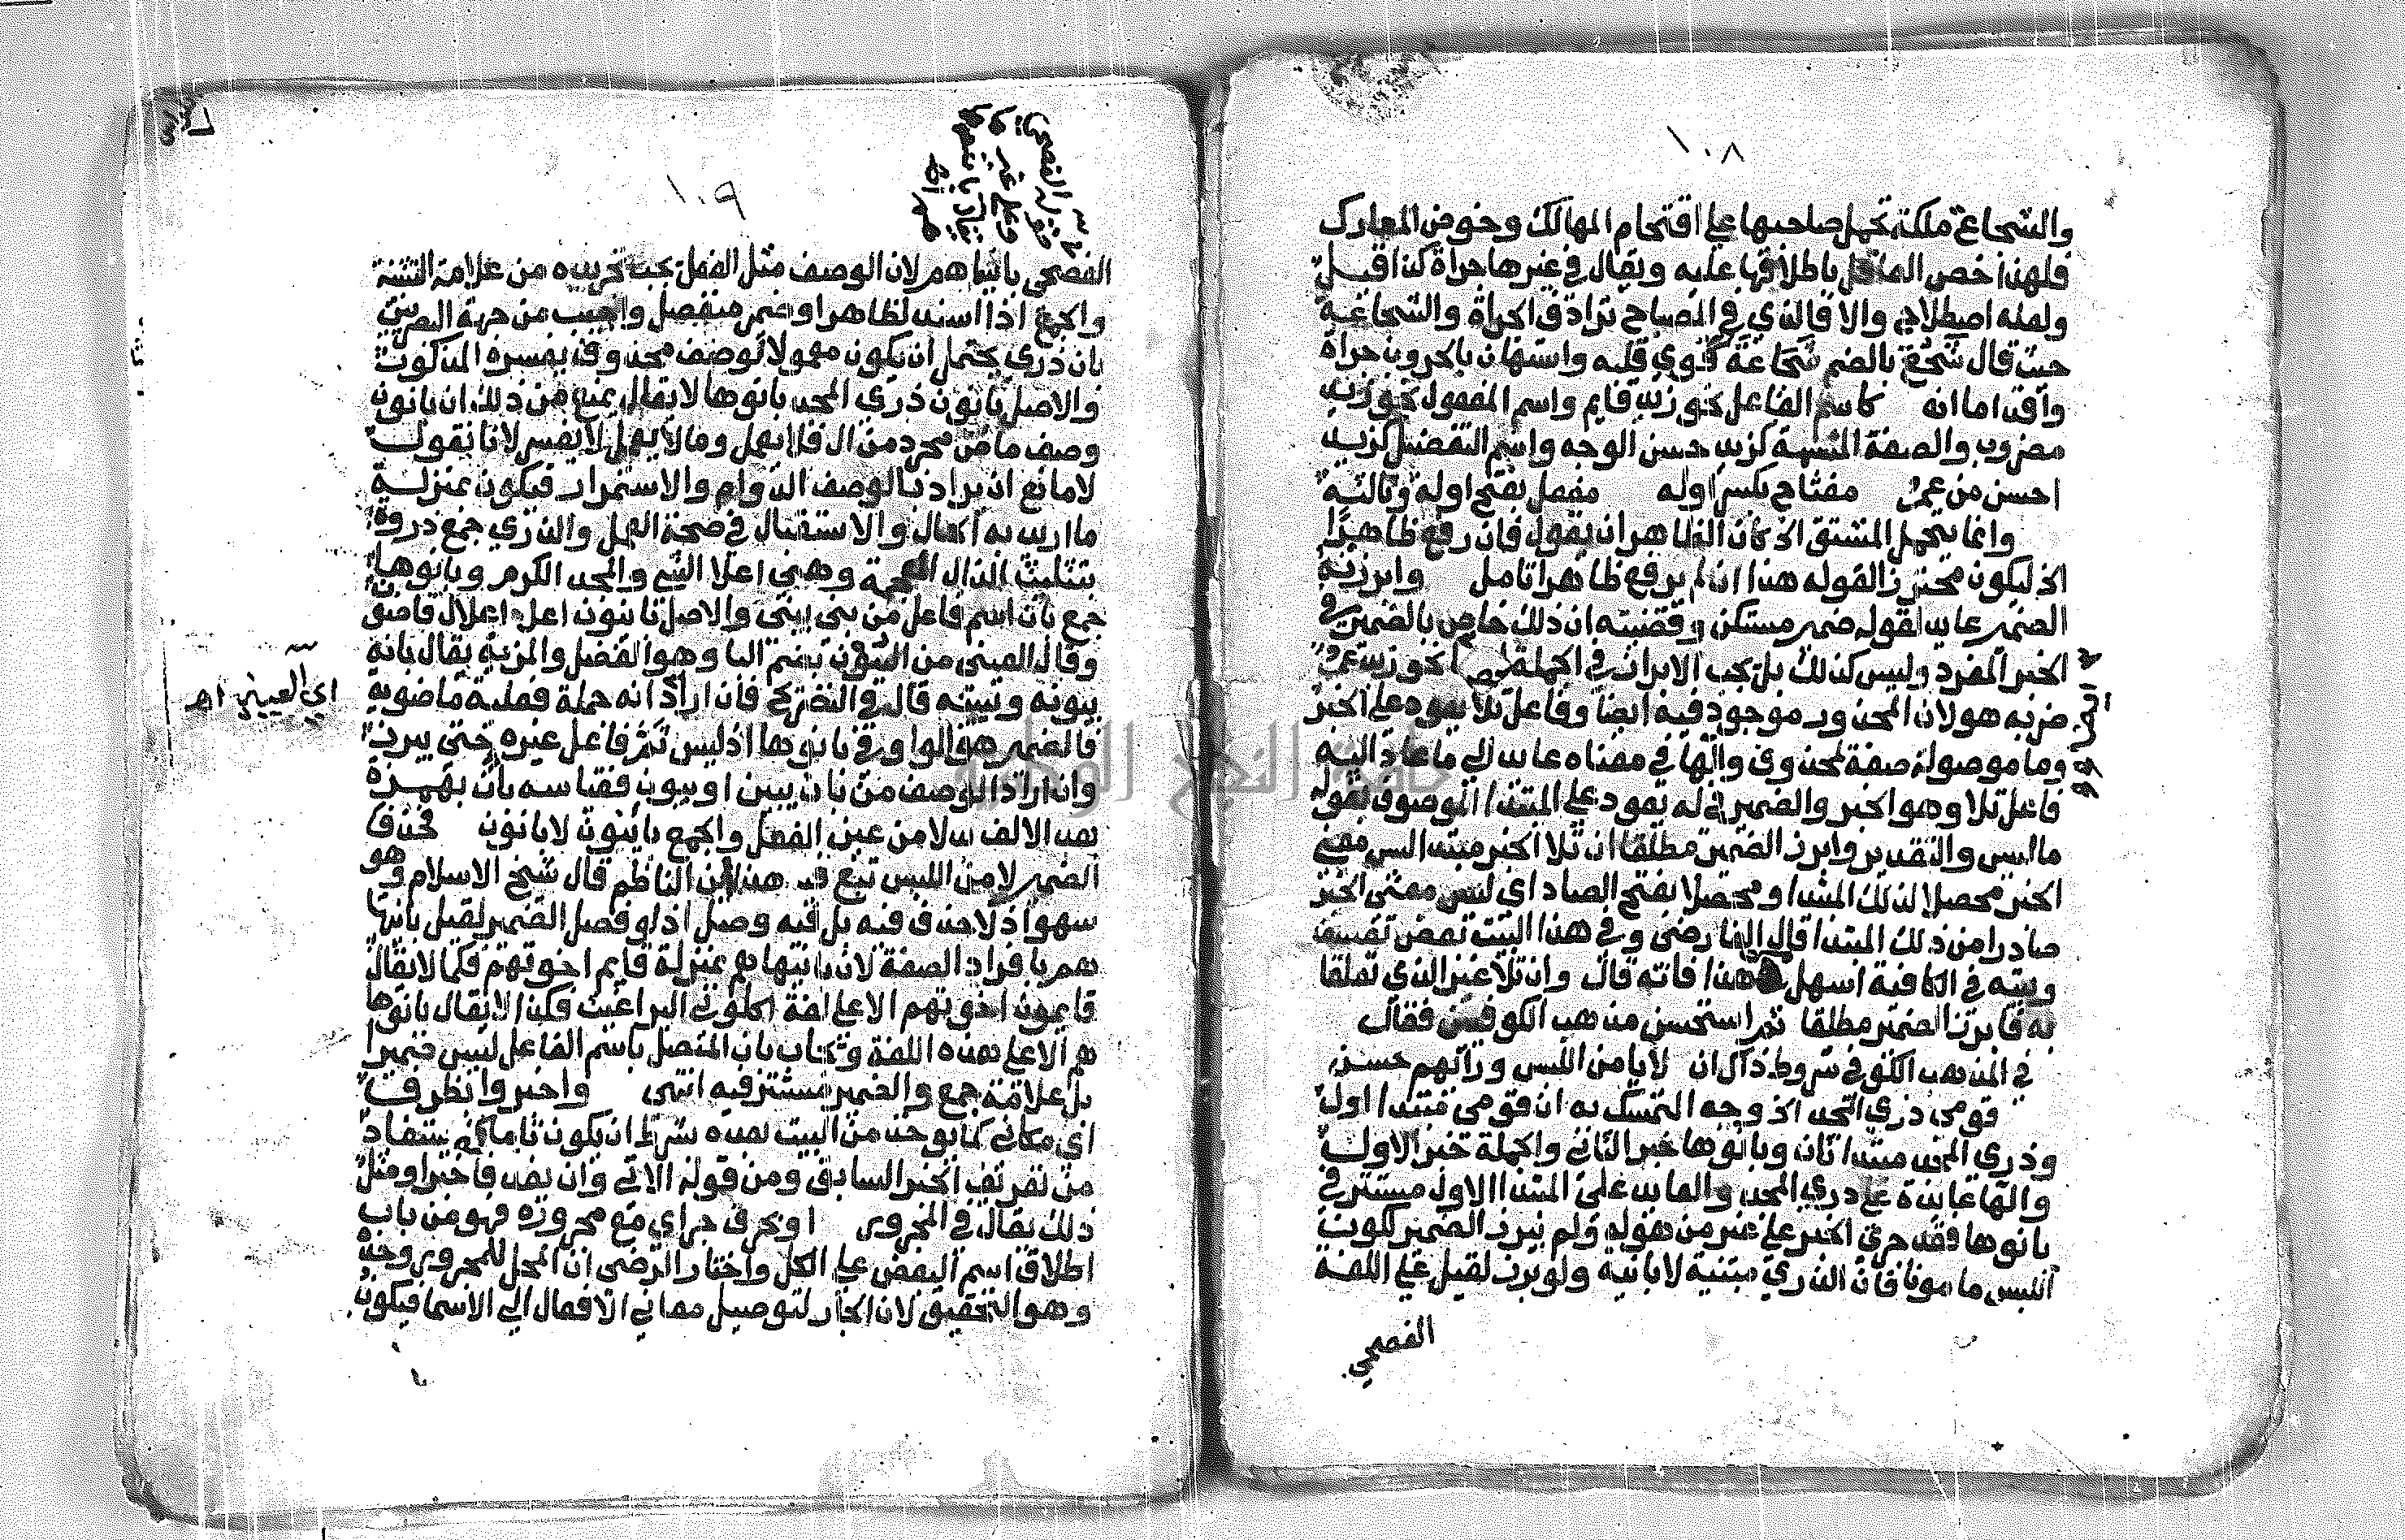 ١٠٨
والشجاعة ملكة تحمل صاحبها على اقتحام المهالك وخوض المعارك
فلهذا خص العاقل باطلاقها عليه ويقال في غيرها جراة كذا قيل
ولعله اصطلاحي والا فالذي في المصباح ترادف الجراة والشجاعة
حيث قال شجع بالضم شجاعة قوي قلبه واستهان بالحروب جراة
واقداما انه كاسم الفاعل نحو زيد قايم واسم المفعول نحو زيد
مضروب والصفة المشبهة كزيد حسن الوجه واسم التفضيل كزيد
احسن من عمرو مفتاح بكسر اوله مفعل بفتح اوله وثالثه
وانما يتحمل المشتق اذ كان الظاهر ان يقول فان رفع ظاهرا
اذ ليكون محترز القوله هذا ان لم يرفع ظاهرا تامل وابرزنه
الضمير عايد لقوله ضمير مستكن وقضيته ان ذلك خاص بالضمير في
الخبر المفرد وليس كذلك بل يجب الابراز في الجملة نحو زيد عمرو
ضربه هو لان المحذور موجود فيه ايضا وفاعل تلا يعود على الخبر
وما موصولة صفة لمحذوف والها في معناه عايد الي ما عاد اليه
فاعل تلا وهو الخبر والضمير في له يعود على المبتدا الموصوف بقوله
ما ليس والتقدير وابرز الضمير مطلقا ان تلا الخبر مبتدا ليس معنى
الخبر محصلا لذلك المبتدا ومحصلا بفتح الصاد اي ليس معنى الخبر
صادرا من ذلك المبتدا قال الفارضي وفي هذا البيت بعض تعسف
وبيته في الكافية اسهل من هذا فانه قال وان تلا غير الذي تعلقا
به فابرز الضمير مطلقا ثم استحسن مذهب الكوفيين فقال
في المذهب الكوفي شرط ذاك ان لا يامن اللبس ورايهم حسن
قومي ذري المجد اذ وجه التمسك به ان قومي مبتدا اول
وذري المجد مبتدا ثان وبانوها خبر الثاني والجملة خبر الاول
والها عايدة على ذري المجد والعايد على المبتدا الاول مستتر في
بانوها فقد جرى الخبر على غير من هو له ولم يبرز الضمير لكون
اللبس مامونا فان الذري مبنية لا بانية ولو برز لقيل على اللغة
الفصحى
١٠٩
الفصحى بانيها هم لان الوصف مثل الفعل يجب تجريده من علامة التثنية
والجمع اذا اسند لظاهر او ضمير منفصل واجيب من جهة البصريين
بان ذري يحتمل ان يكون معمولا لوصف محذوف يفسره المذكور
والاصل بانون ذري المجد بانوها لا يقال يمنع من ذلك ان بانون
وصف ماض مجرد من ال فلا يعمل وما لا يعمل لا يفسر لانا نقول
لا مانع ان يراد بالوصف الدوام والاستمرار فيكون بمنزلة
ما اريد به الحال والاستقبال في صحة العمل والذري جمع ذروة
بتثليث الذال المعجمة وهي اعلا الشي والمجد الكرم وبانوها
جمع بان اسم فاعل من بنى يبني والاصل بانيون اعل اعلال قاضون
وقال العيني من البون بضم البا وهو الفضل والمزية يقال بانه
يبونه ويبينه قال في التصريح فان اراد انه جملة فعلية ماضوية
فالضمير هو الواو في بانوها اذ ليس ثم فاعل غيره حتى يبرز
وان اراد الوصف من بان يبين او يبون فقياسه بائن بهمزة
بعد الالف بدلا من عين الفعل والجمع باينون لا بانون فحذف
الضمير لامن اللبس تبع فيه هذا ابن الناظم قال شيخ الاسلام وهو
سهو اذ لا حذف فيه بل فيه وصل اذ لو فصل الضمير لقيل بانيها
هم بافراد الصفة لان بانيها هم بمنزلة قايم اخوتهم فكما لا يقال
قايمون اخوتهم الا على لغة اكلوني البراغيث فكذا لا يقال بانوها
هم الا على هذه اللغة ويجاب بان المتصل باسم الفاعل ليس ضميرا
بل علامة جمع والضمير مستتر فيه انتهى واخبروا بظرف
اي مكاني كما يوخذ من البيت بعده شرط ان يكون تاما كما يستفاد
من تعريف الخبر السابق ومن قوله الاتي وان يفد فاخبرا ومثل
ذلك يقال في المجرور او بحرف جر اي مع مجروره فهو من باب
اطلاق اسم البعض على الكل واختار الرضى ان المحل للمجرور وحده
وهو التحقيق لان الجار لتوصيل معاني الافعال الي الاسما فيكون
اي العيني اهـ